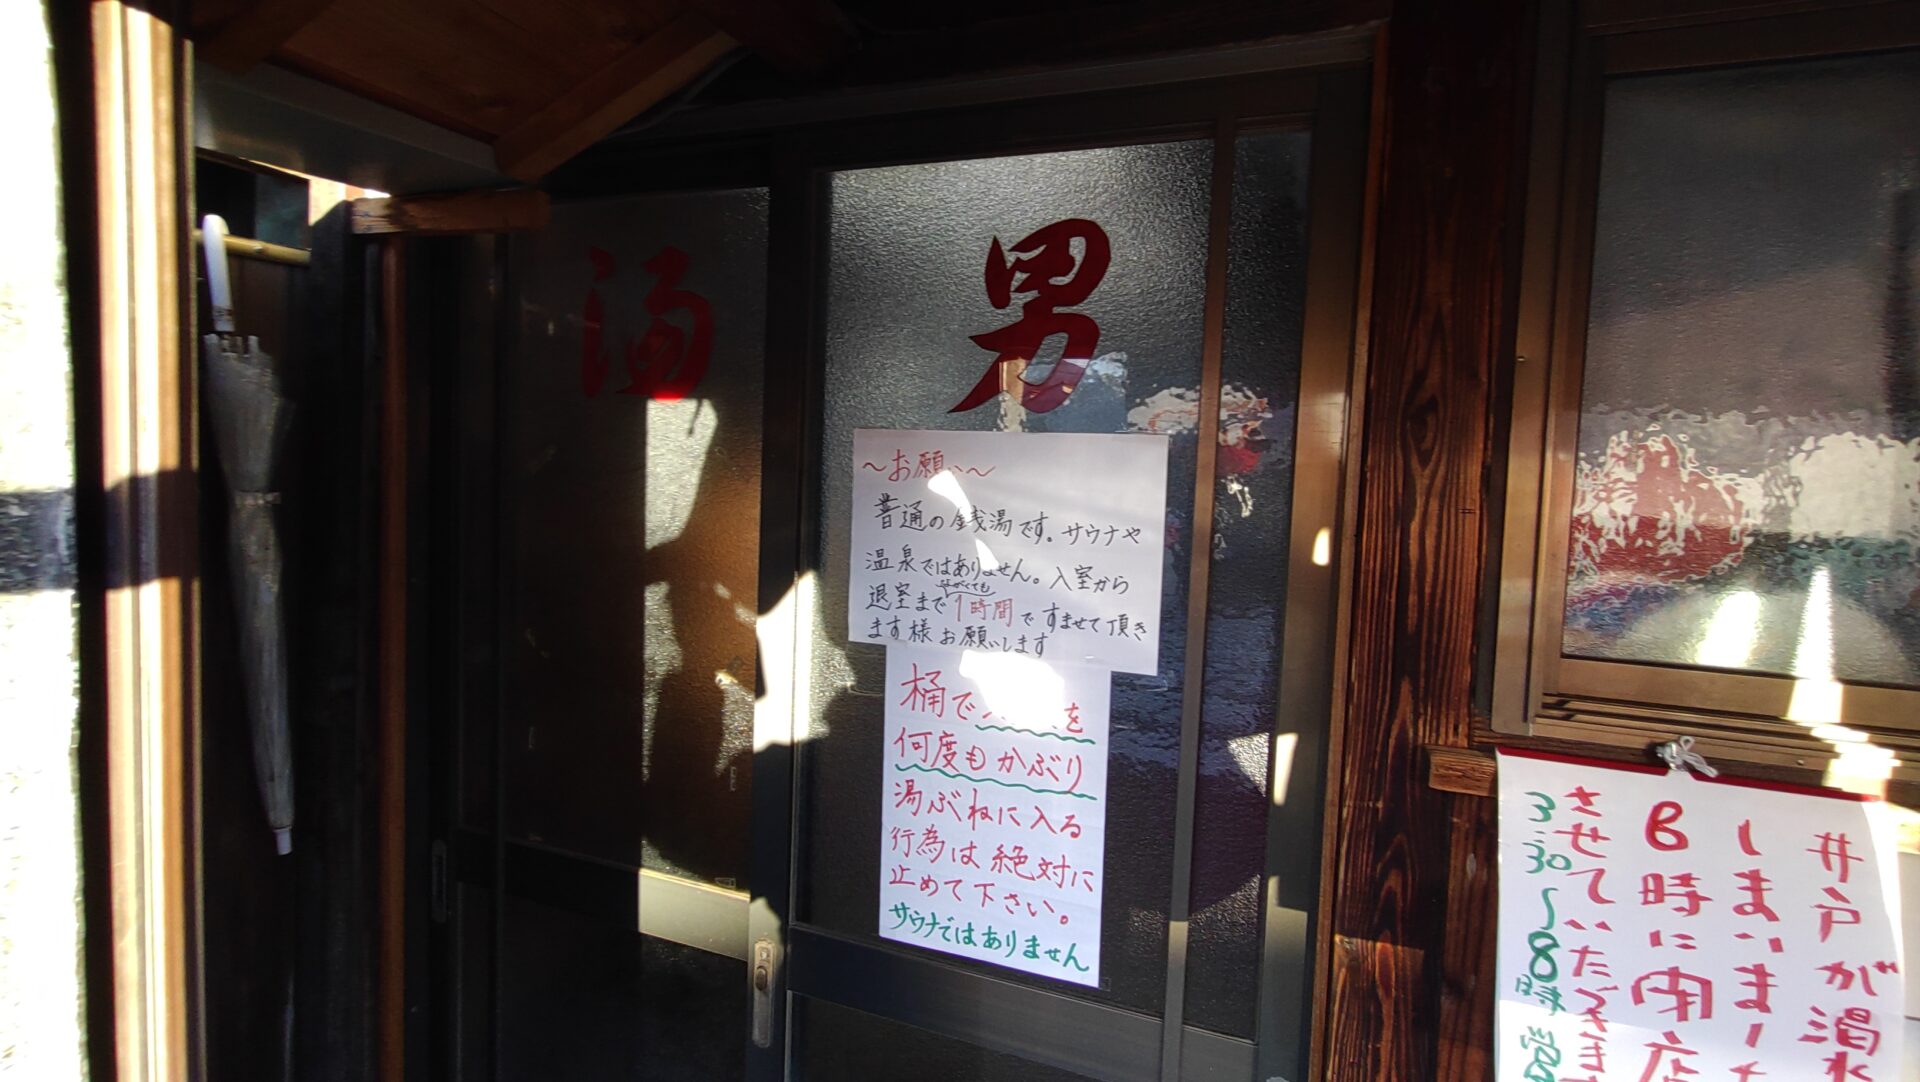 男
湯
〜お願い〜
普通の銭湯です。サウナや
温泉ではありません。入室から
ながくても
退室まで1時間ですませて頂き
ます様お願いします
桶で を
何度もかぶり
湯ぶねに入る
行為は絶対に
止めて下さい。
サウナではありません
井戸が渇水
しまいまし
8時に閉店
させていただきま
3:30〜8時 営